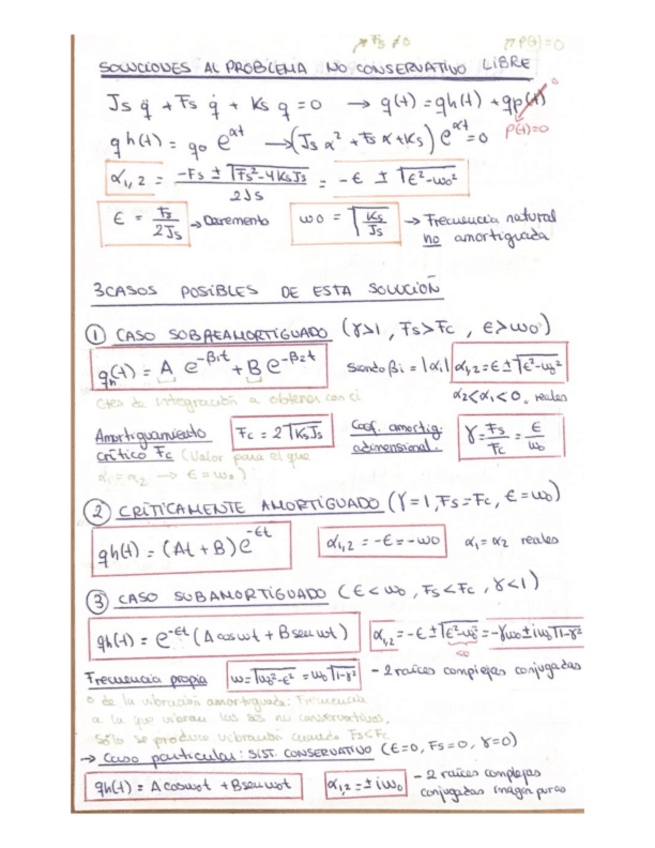 ↗ Fs ≠ 0 ↗ P(t)=0
SOLUCIONES AL PROBLEMA NO CONSERVATIVO LIBRE
Js q̈ + Fs q̇ + Ks q = 0 → q(t) = qh(t) + qp(t) 0
qh(t) = q0 e^αt → (Js α² + Fs α + Ks) e^αt = 0 P(t)=0
α1,2 = (-Fs ± √(Fs² - 4KsJs)) / 2Js = -ε ± √(ε² - ω0²)
ε = Fs / 2Js → Decremento ω0 = √(Ks / Js) → Frecuencia natural no amortiguada
3 CASOS POSIBLES DE ESTA SOLUCIÓN
① CASO SOBREAMORTIGUADO (γ>1, Fs>Fc, ε>ω0)
qh(t) = A e^-β1t + B e^-β2t siendo βi = |αi| α1,2 = ε ± √(ε² - ω0²)
Ctes de integración a obtener con ci α2<α1<0. reales
Amortiguamiento crítico Fc (Valor para el que α1 = α2 → ε = ω0) Fc = 2√(KsJs) Coef. amortig. adimensional. γ = Fs / Fc = ε / ω0
② CRÍTICAMENTE AMORTIGUADO (γ=1, Fs=Fc, ε=ω0)
qh(t) = (At + B) e^-εt α1,2 = -ε = -ω0 α1 = α2 reales
③ CASO SUBAMORTIGUADO (ε<ω0, Fs<Fc, γ<1)
qh(t) = e^-εt (A cosωt + B senωt) α1,2 = -ε ± √(ε² - ω0²) = -γω0 ± iω0√(1-γ²)
<0
Frecuencia propia ω = √(ω0² - ε²) = ω0√(1-γ²) - 2 raíces complejas conjugadas
o de la vibración amortiguada: Frecuencia
a la que vibran los sis no conservativos.
Sólo se produce vibración cuando Fs<Fc
→ Caso particular: SIST. CONSERVATIVO (ε=0, Fs=0, γ=0)
qh(t) = A cosω0t + B senω0t α1,2 = ± iω0 - 2 raíces complejas
conjugadas imagin puras